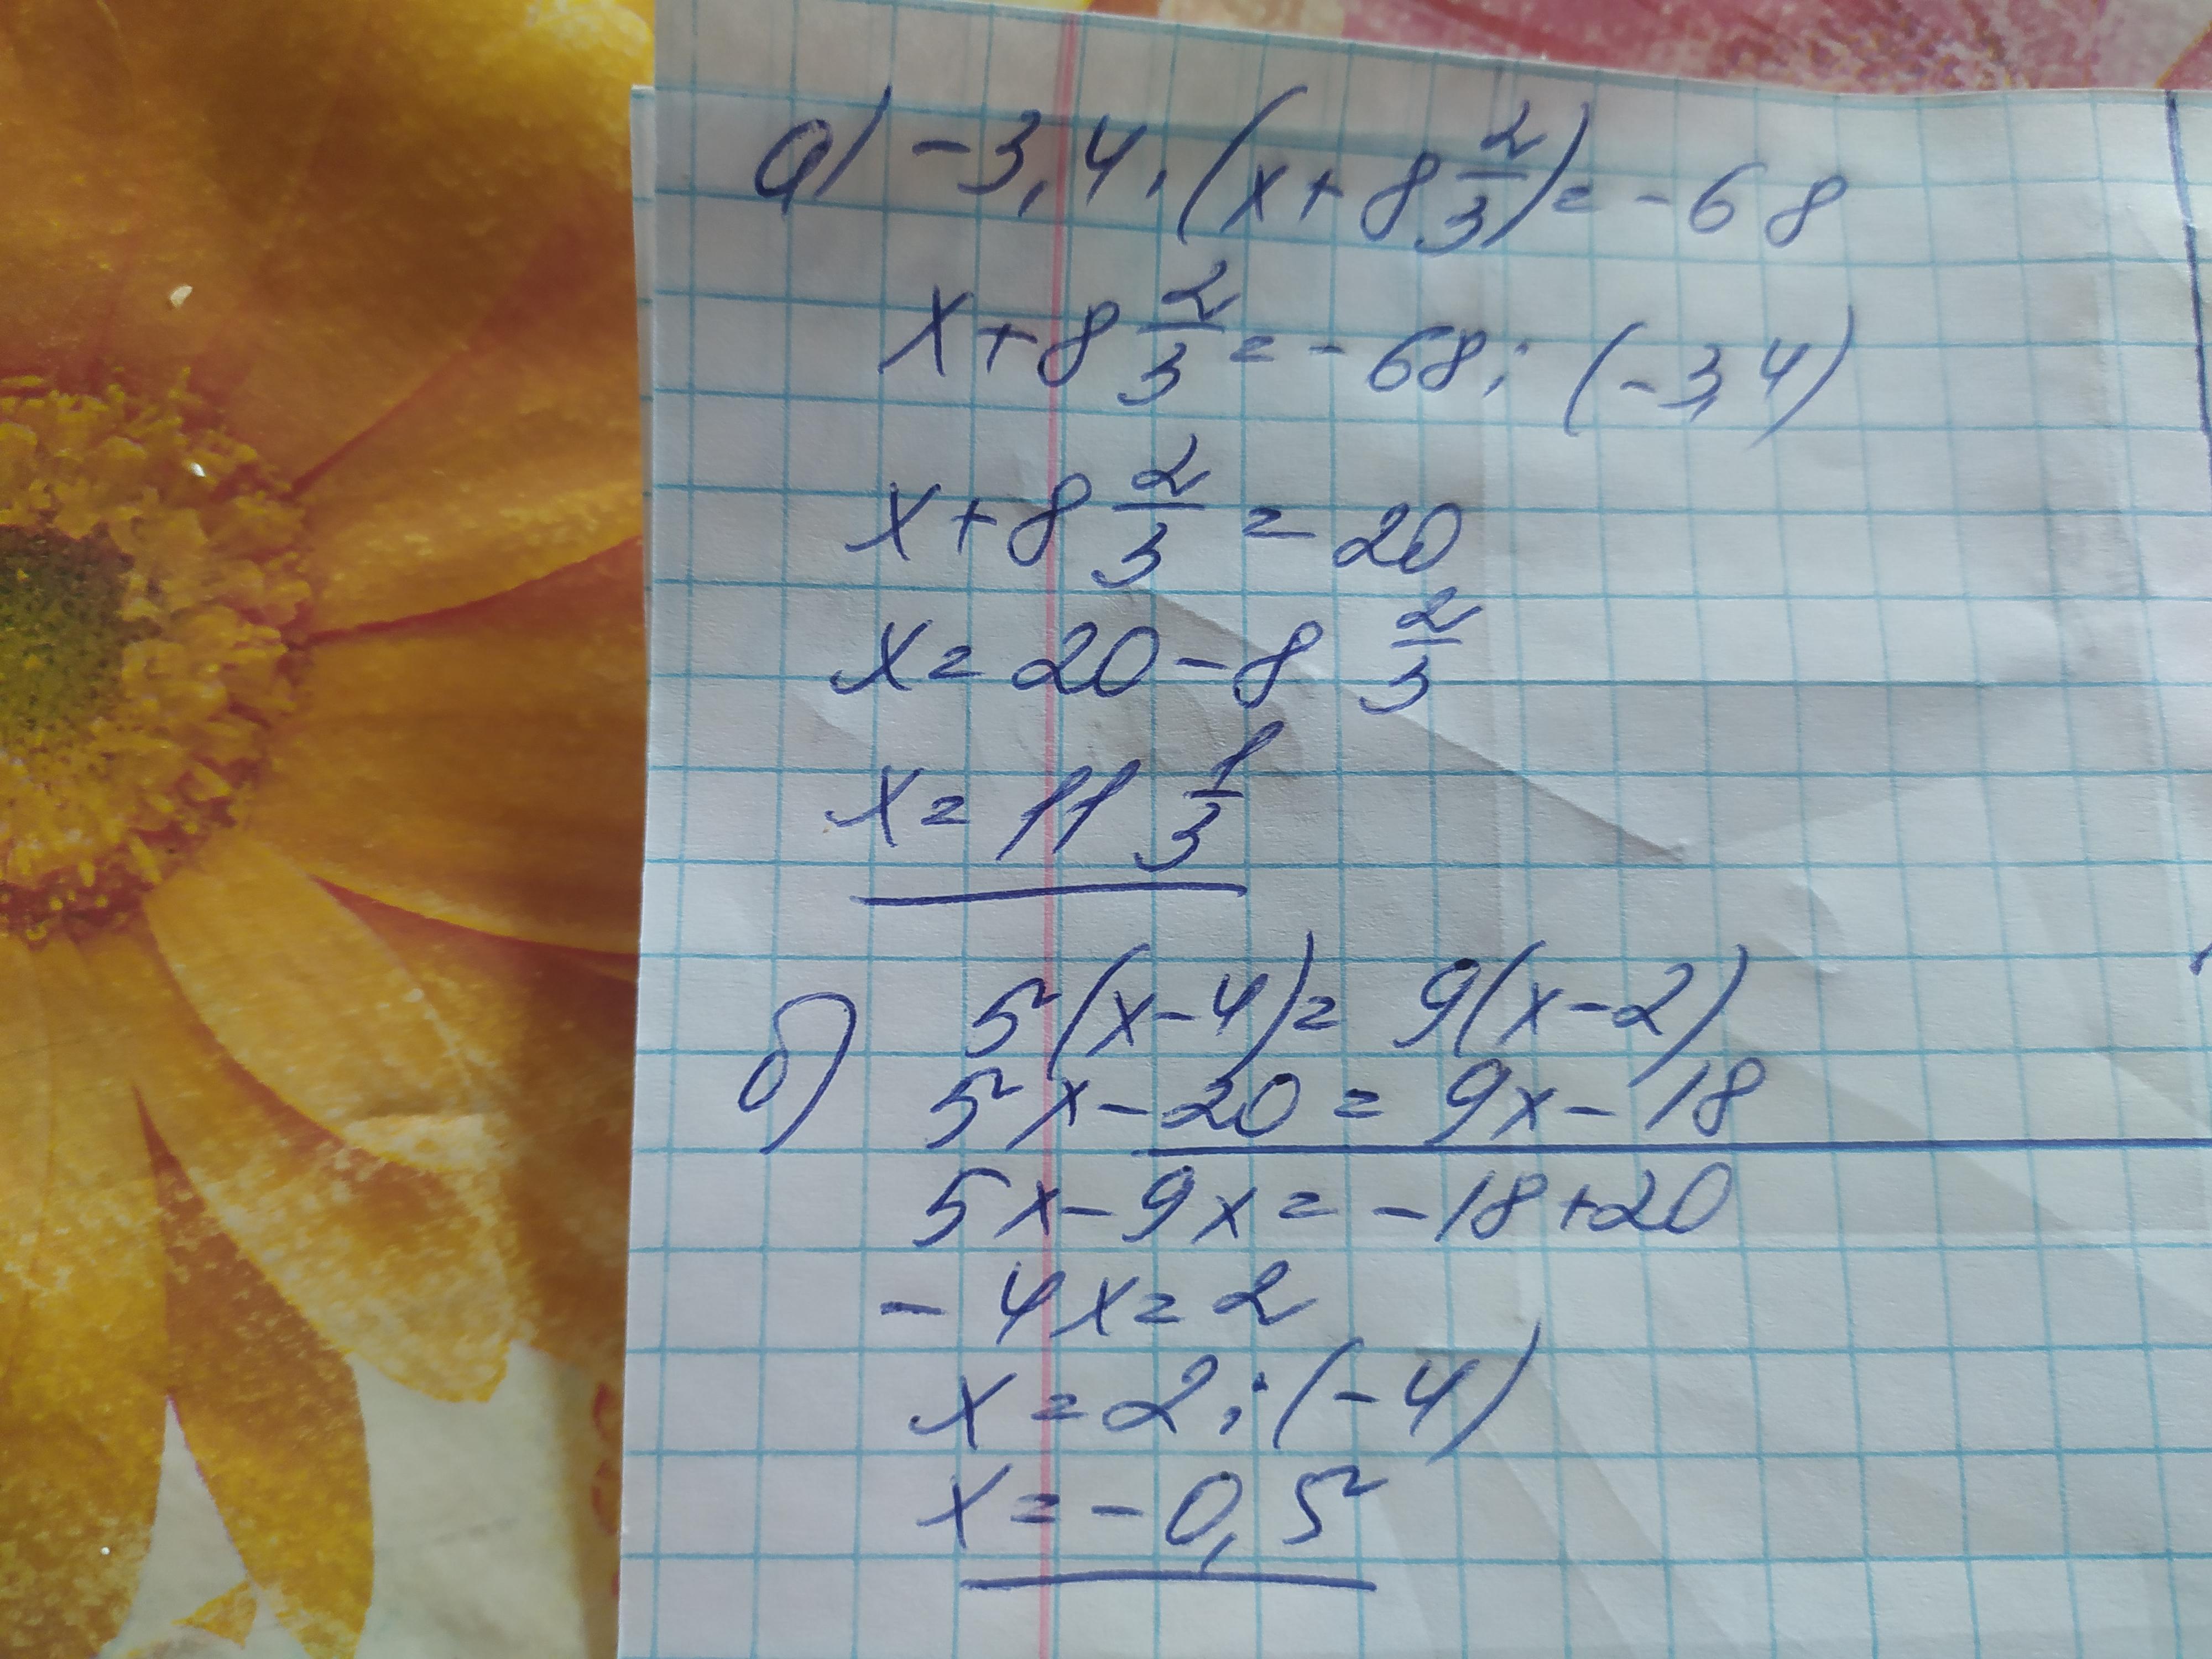 а) -3,4 · (x + 8 2/3) = -68
x + 8 2/3 = -68 : (-3,4)
x + 8 2/3 = 20
x = 20 - 8 2/3
x = 11 1/3
б) 5(x-4) = 9(x-2)
5x - 20 = 9x - 18
5x - 9x = -18 + 20
-4x = 2
x = 2 : (-4)
x = -0,5